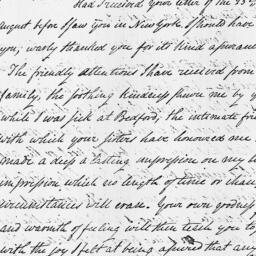 Had I received your letter of the
August before I saw you in New York I should have
you, warmly thanked you for its kind assurances
The friendly attentions I have received from
family, the soothing kindness shewn me by y
while I was sick at Bedford, the intimate frie
with which your sisters have honoured me
made a deep & lasting impression on my he
impression which no length of time or chan
circumstances will erase. Your own goodness
and warmth of feeling will then teach you to
with the joy I felt at being assured that any